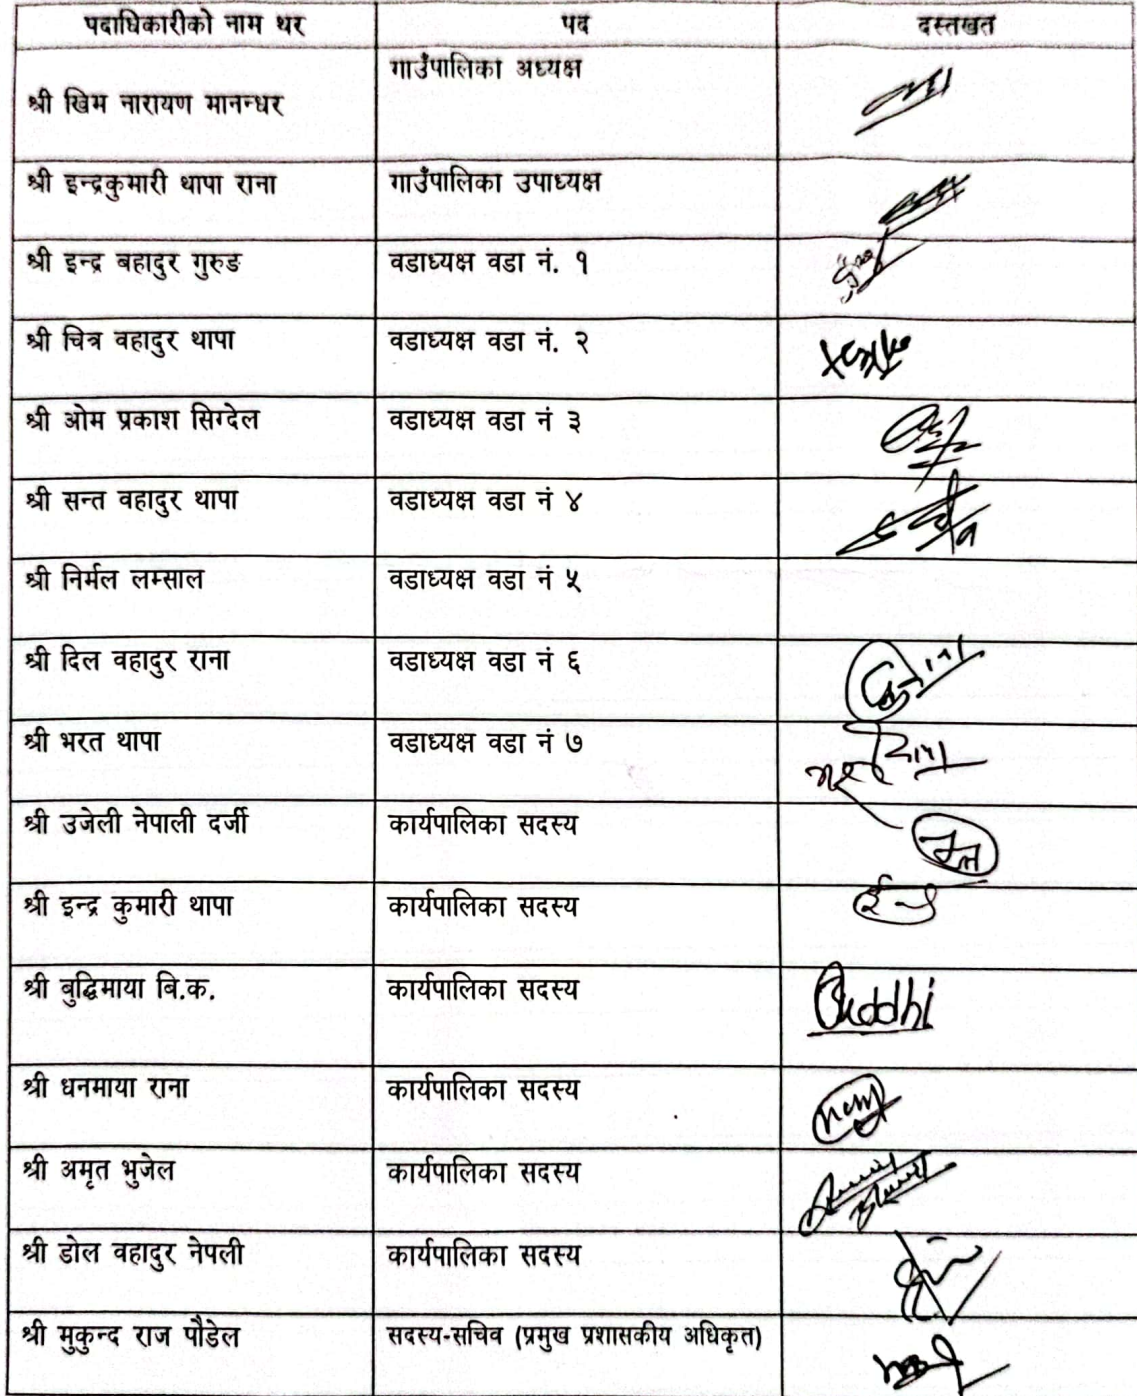 पदाधिकारीको नाम थर पद दस्तखत
श्री खिम नारायण मानन्धर गाउँपालिका अध्यक्ष
श्री इन्द्रकुमारी थापा राना गाउँपालिका उपाध्यक्ष
श्री इन्द्र बहादुर गुरुङ वडाध्यक्ष वडा नं. १
श्री चित्र वहादुर थापा वडाध्यक्ष वडा नं. २
श्री ओम प्रकाश सिग्देल वडाध्यक्ष वडा नं ३
श्री सन्त वहादुर थापा वडाध्यक्ष वडा नं ४
श्री निर्मल लम्साल वडाध्यक्ष वडा नं ५
श्री दिल वहादुर राना वडाध्यक्ष वडा नं ६
श्री भरत थापा वडाध्यक्ष वडा नं ७
श्री उजेली नेपाली दर्जी कार्यपालिका सदस्य
श्री इन्द्र कुमारी थापा कार्यपालिका सदस्य
श्री बुद्धिमाया बि.क. कार्यपालिका सदस्य Buddhi
श्री धनमाया राना कार्यपालिका सदस्य
श्री अमृत भुजेल कार्यपालिका सदस्य
श्री डोल वहादुर नेपली कार्यपालिका सदस्य
श्री मुकुन्द राज पौडेल सदस्य-सचिव (प्रमुख प्रशासकीय अधिकृत)